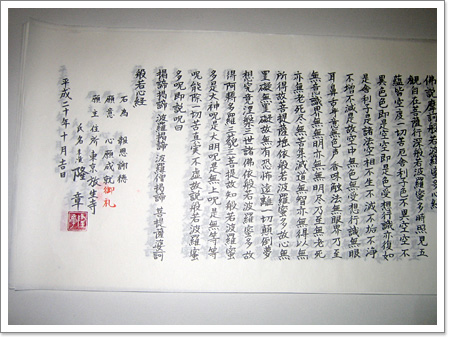 佛説摩訶般若波羅蜜多心経
観自在菩薩行深般若波羅蜜多時照見五
蘊皆空度一切苦厄舎利子色不異空空不
異色色即是空空即是色受想行識亦復如
是舎利子是諸法空相不生不滅不垢不浄
不増不減是故空中無色無受想行識無眼
耳鼻舌身意無色声香味触法無眼界乃至
無意識界無無明亦無無明尽乃至無老死
亦無老死尽無苦集滅道無智亦無得以無
所得故菩提薩埵依般若波羅蜜多故心無
罣礙無罣礙故無有恐怖遠離一切顛倒夢
想究竟涅槃三世諸仏依般若波羅蜜多故
得阿耨多羅三藐三菩提故知般若波羅蜜
多是大神呪是大明呪是無上呪是無等等
呪能除一切苦真実不虚故説般若波羅蜜
多呪即説呪曰
掲諦掲諦 波羅掲諦 波羅僧掲諦 菩提薩婆訶
般若心経
右為 報恩謝徳
願意 心願成就 御礼
願主 住所 東京 放生寺
氏名 隆章
平成二十年十月吉日